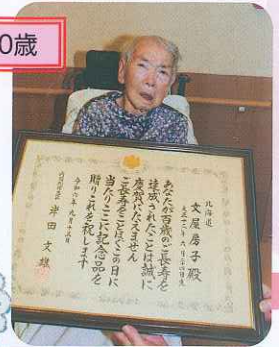 0歳
北海道
文屋房子殿
大正十二年六月二十四日生
あなたが百歳のご長寿を
達成されたことは誠に
慶賀にたえません
ご長寿をことほぐこの日に
当たりここに記念品を
贈りこれを祝します
令和五年九月十五日
内閣総理大臣 岸田文雄